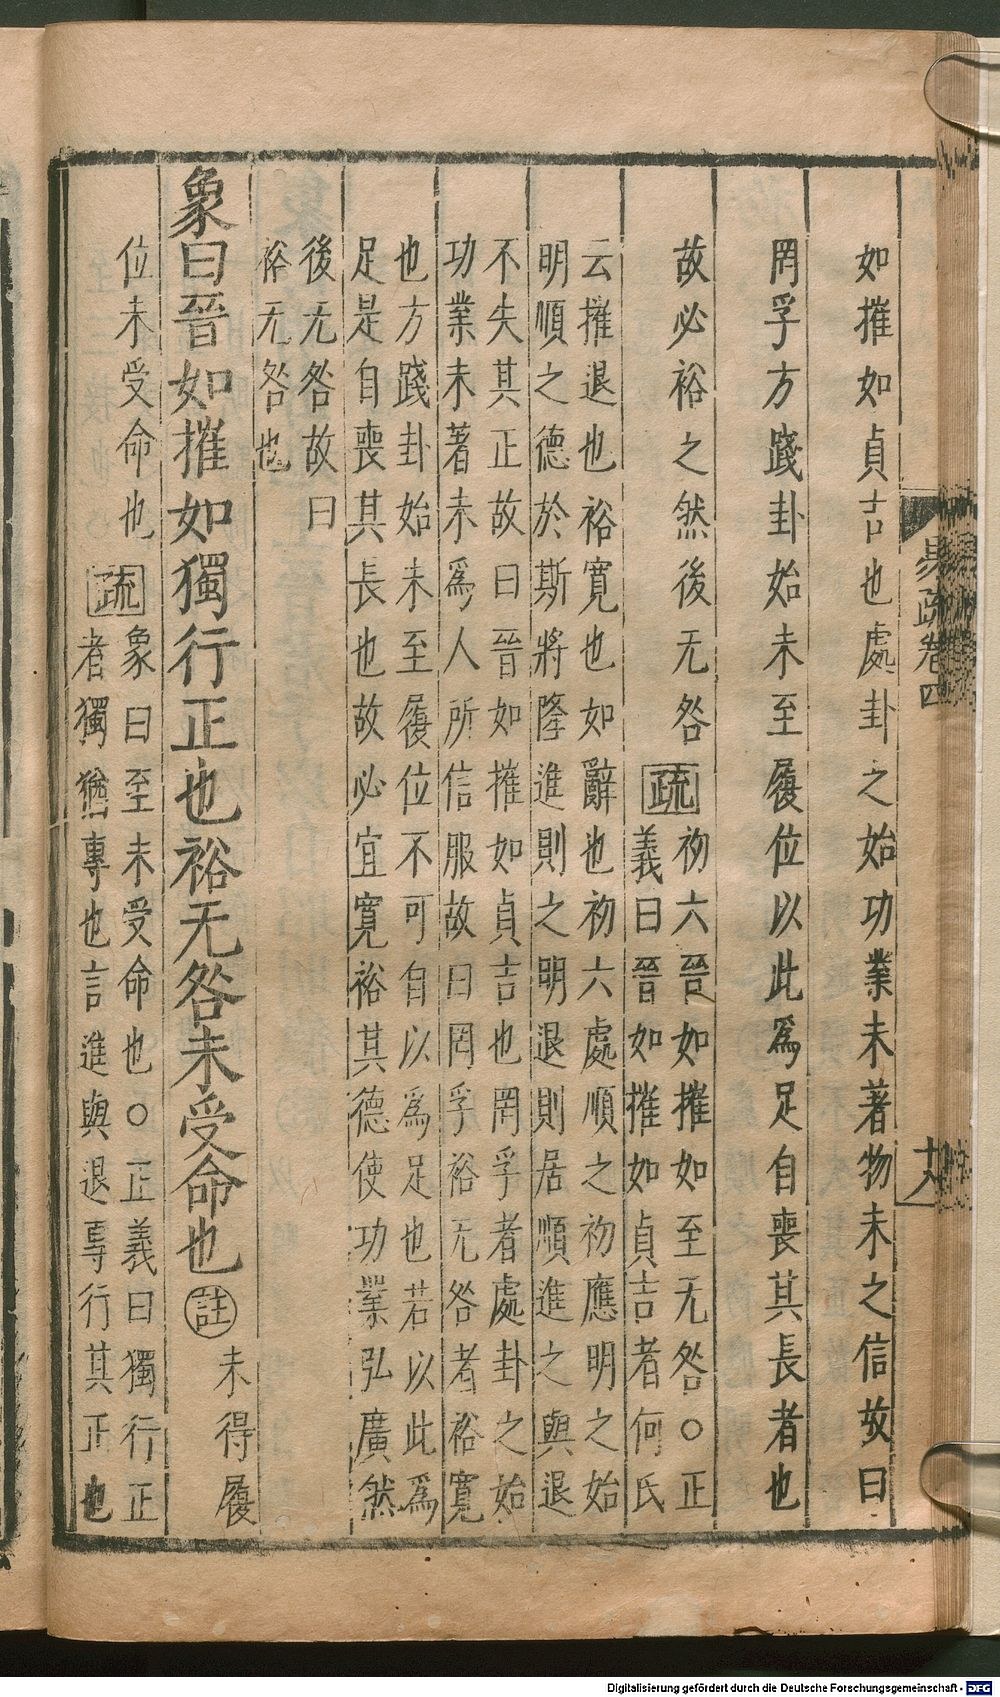 易疏卷四
九
如摧如貞吉也處卦之始功業未著物未之信故曰
罔孚方踐卦始未至履位以此爲足自喪其長者也
故必裕之然後无咎疏初六晉如摧如至无咎○正
義曰晉如摧如貞吉者何氏
云摧退也裕寬也如辭也初六處順之初應明之始
明順之德於斯將隆進則之明退則居順進之與退
不失其正故曰晉如摧如貞吉也罔孚者處卦之始
功業未著未爲人所信服故曰罔孚裕无咎者裕寬
也方踐卦始未至履位不可自以爲足也若以此爲
足是自喪其長也故必宜寬裕其德使功業弘廣然
後无咎故曰
裕无咎也
象曰晉如摧如獨行正也裕无咎未受命也註未得履
位未受命也疏象曰至未受命也○正義曰獨行正
者獨猶專也言進與退專行其正也
Digitalisierung gefördert durch die Deutsche Forschungsgemeinschaft - DFG